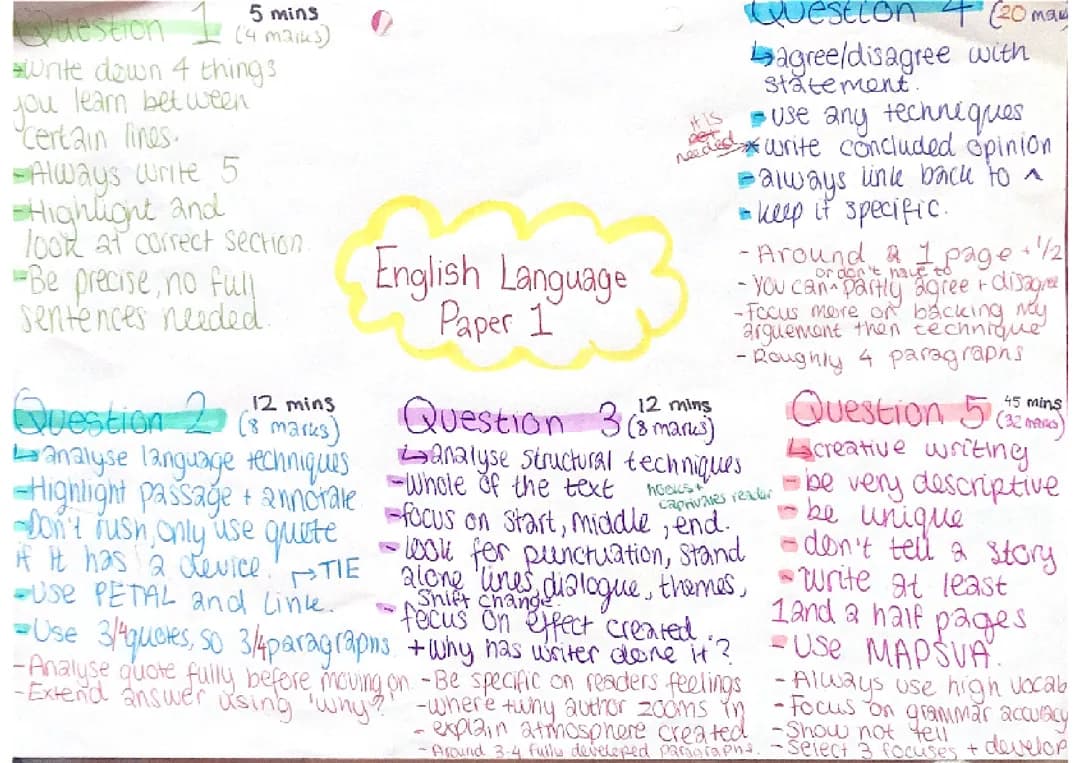 Question 1 5 mins
(4 marks)
→Write down 4 things
you learn between
certain lines.
-Always write 5
-Highlight and
look at correct section.
-Be precise, no full
sentences needed.
English Language
Paper 1
Question 4 (20 mar
↳agree/disagree with
statement.
-use any techniques
it is
needed
*write concluded opinion
-always link back to ^
-keep it specific.
- Around a 1 page + 1/2
or don't have to
- You can^ partly agree + disagree
-Focus more on backing my
arguement then technique
- Roughly 4 paragraphs
Question 2 12 mins
(8 marks)
↳analyse language techniques
-Highlight passage + annotate
-Don't rush, only use quote
if it has a device. →TIE
-Use PETAL and Link.
-Use 3/4quotes, so 3/4paragraphs.
-Analyse quote fully before moving on
-Extend answer using 'why?'
Question 3 12 mins
(8 marks)
↳analyse structural techniques
-Whole of the text
hooks +
captivates reader
-focus on start, middle, end.
-look for punctuation, stand
alone lines, dialogue, themes,
Shift change.
-focus on effect created.
+why has writer done it?
-Be specific on readers feelings
-where +why author zooms in
- explain atmosphere created
-Around 3-4 fully developed paragraphs.
Question 5 45 mins
(32 marks)
↳creative writing
-be very descriptive
-be unique
-don't tell a story
-Write at least
1and a half pages
-USE MAPSVA.
-Always use high vocab
-Focus on grammar accuracy
-Show not tell
-Select 3 focuses + develop